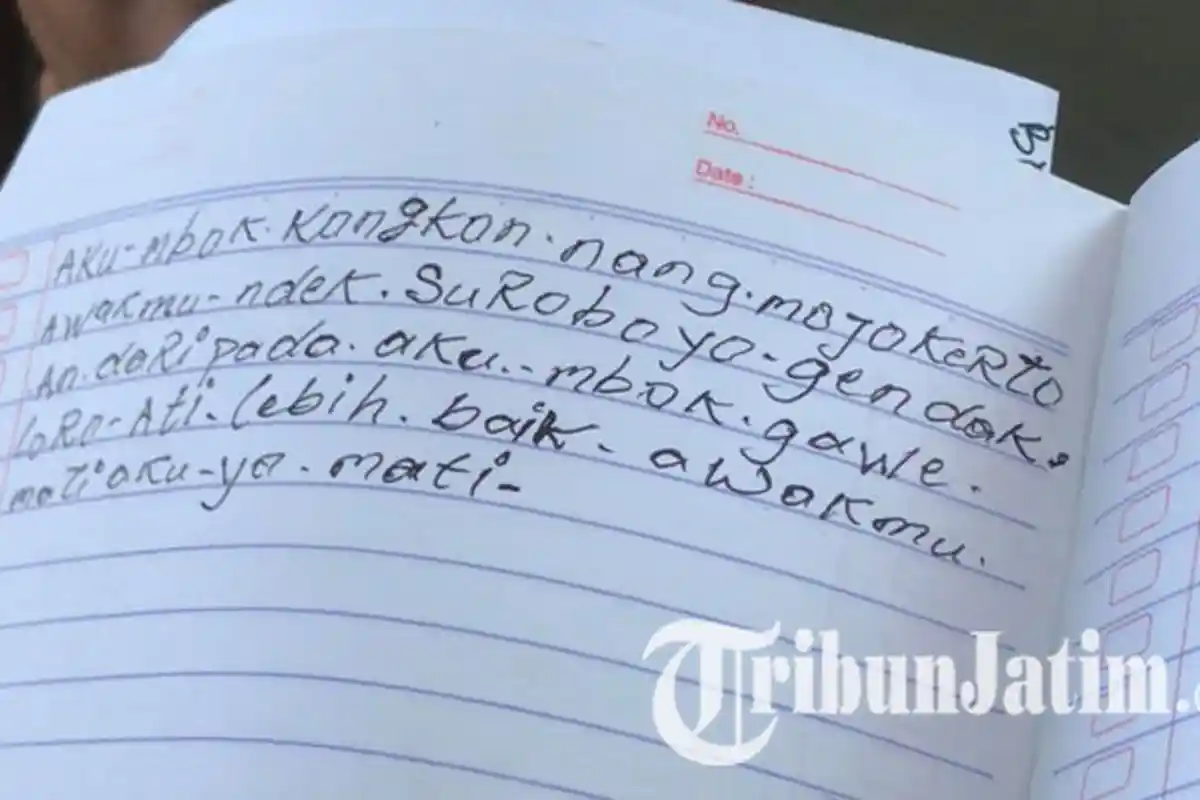 No.
Date :
AKU-mbok.Kongkon.nang.mojokerto
Awakmu-ndek.SuRoboyo-gendak,
An.daRipada.aku..mbok.gawe.
loRo-Ati.lebih.baik-awakmu.
mati aku-ya.mati-
TribunJatim.